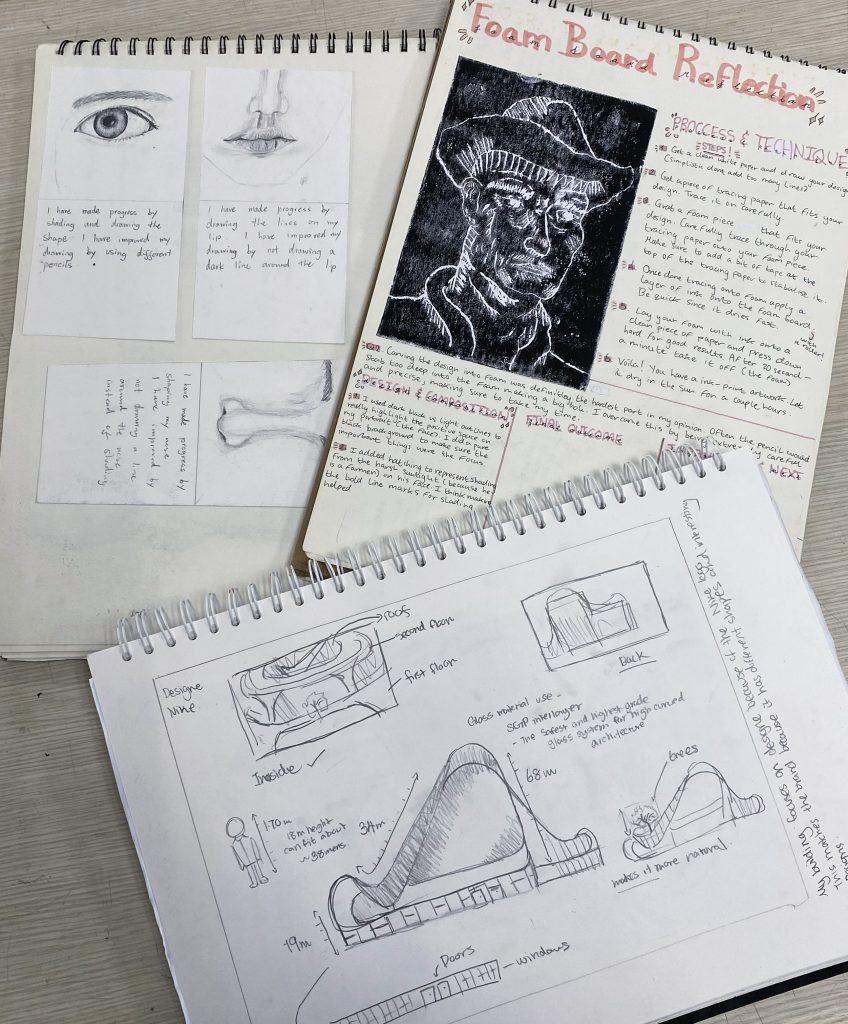 I have made progress by
shading and drawing the
shape I have improved my
drawing by using different
pencils
I have made progress by
drawing the lines on my
lip I have improved my
drawing by not drawing a
dark line around the lip
I have made progress by
shading my nose
I have improved by
not drawing a line
around the nose
instead of shading
Foam Board Reflection
PROCCESS & TECHNIQUE
STEPS!
Get a clean white paper and draw your design
(simplistic dont add too many lines!)
Get a piece of tracing paper that fits your
design. Trace it on carefully.
Grab a foam piece that fits your
design. Carefully trace through your
tracing paper onto your foam piece.
Make sure to add a bit of tape at the
top of the tracing paper to stabilise it.
Once done tracing onto foam apply a
layer of ink onto the foam board with a roller!
Be quick since it dries fast.
Lay your foam with ink onto a
clean piece of paper and press down
hard for good results. After 20 second-
a minute take it off (the foam)
Voila! You have a ink-print artwork. Let
it dry in the sun for a couple hours.
Carving the design into foam was definitley the hardest part in my opinion. Often the pencil would
stab too deep into the foam making a big hole. I overcame this by being extra careful
and precise, making sure to take my time.
DESIGN & COMPOSITION
I used dark vs light outlines to
really highlight the positive space on
my portrait (the face). I did a pure
black background to make sure the
important things were the focus.
I added hatching to represent shading
from the harsh sunlight (because he
is a farmer) on his face. I think making
the bold line marks for shading
helped
FINAL OUTCOME
NEXT
Designe
Nike
roof
second floor
first floor
Inside
Back
Glass material use -
SGP interlayer
- The safest and highest grade
glass system for high curved
architecture
1.70 m
18m height
can fit about
~38mens
34m
68m
19m
trees
makes it more natural.
Doors
windows
My building focuses on designe because of the Nike logo
This matches the brand because it has different shapes and interesting